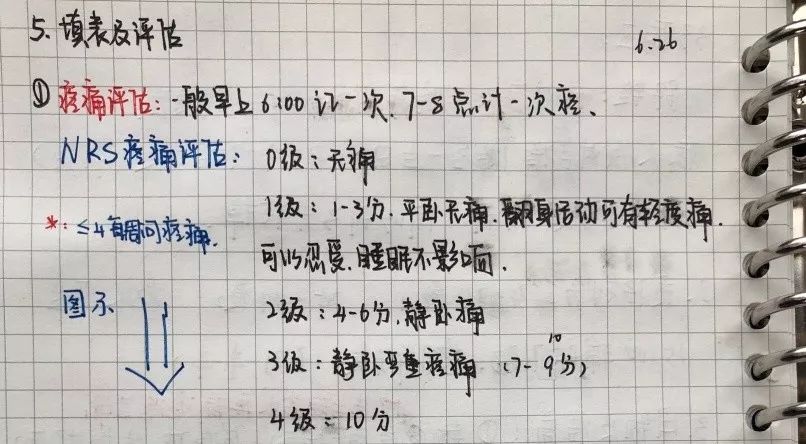 5. 填表及评估
6.26
① 疼痛评估：一般早上6:00 记一次. 7-8点计一次疼、
NRS疼痛评估：0级：无痛
1级：1-3分. 平卧无痛. 翻身活动可有轻度痛.
*：≤4每周问疼痛.
可以忍受. 睡眠不影响.
图示
2级：4-6分, 静卧痛
10
3级：静卧严重疼痛 (7-9分)
4级：10分